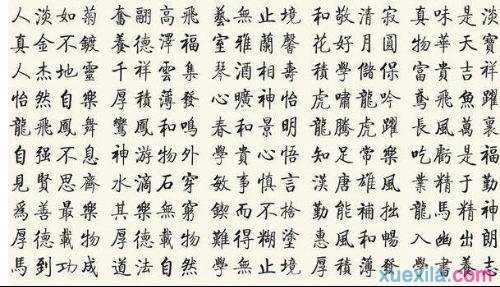 人淡如菊 奮翮高飛 藝無止境 和敬清寂 真味是淡
真金不鍍 養德澤福 室雅蘭馨 花好月圓 物華天寶
人杰地靈 千祥雲集 琴酒相壽 積學儲保 富貴吉祥
怡然自樂 厚積薄發 心曠神怡 虎嘯龍吟 鳶飛魚躍
龍飛鳳舞 鸞鳳和鳴 春和景明 龍騰虎躍 長風萬裏
自强不息 神游物外 學貴心悟 知足常樂 吃虧是福
見賢思齊 水滴石穿 敏事慎言 漢唐雄風 業精于勤
為善最樂 其樂無窮 鍥而不捨 勤能補拙 龍馬精神
厚德載物 厚德載物 難得糊塗 惠風和暢 入幽出朗
馬到功成 道法自然 學無止境 厚積薄發 學書養志
xuexila.com